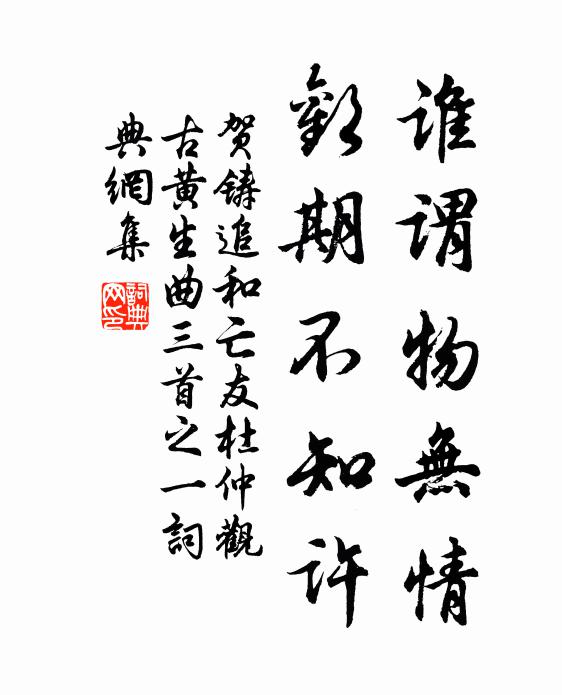 誰謂物無情
歡期不知許
贺鑄追和亡友杜仲觀
古黄生曲三首之一詞
典網集
詞典
网印